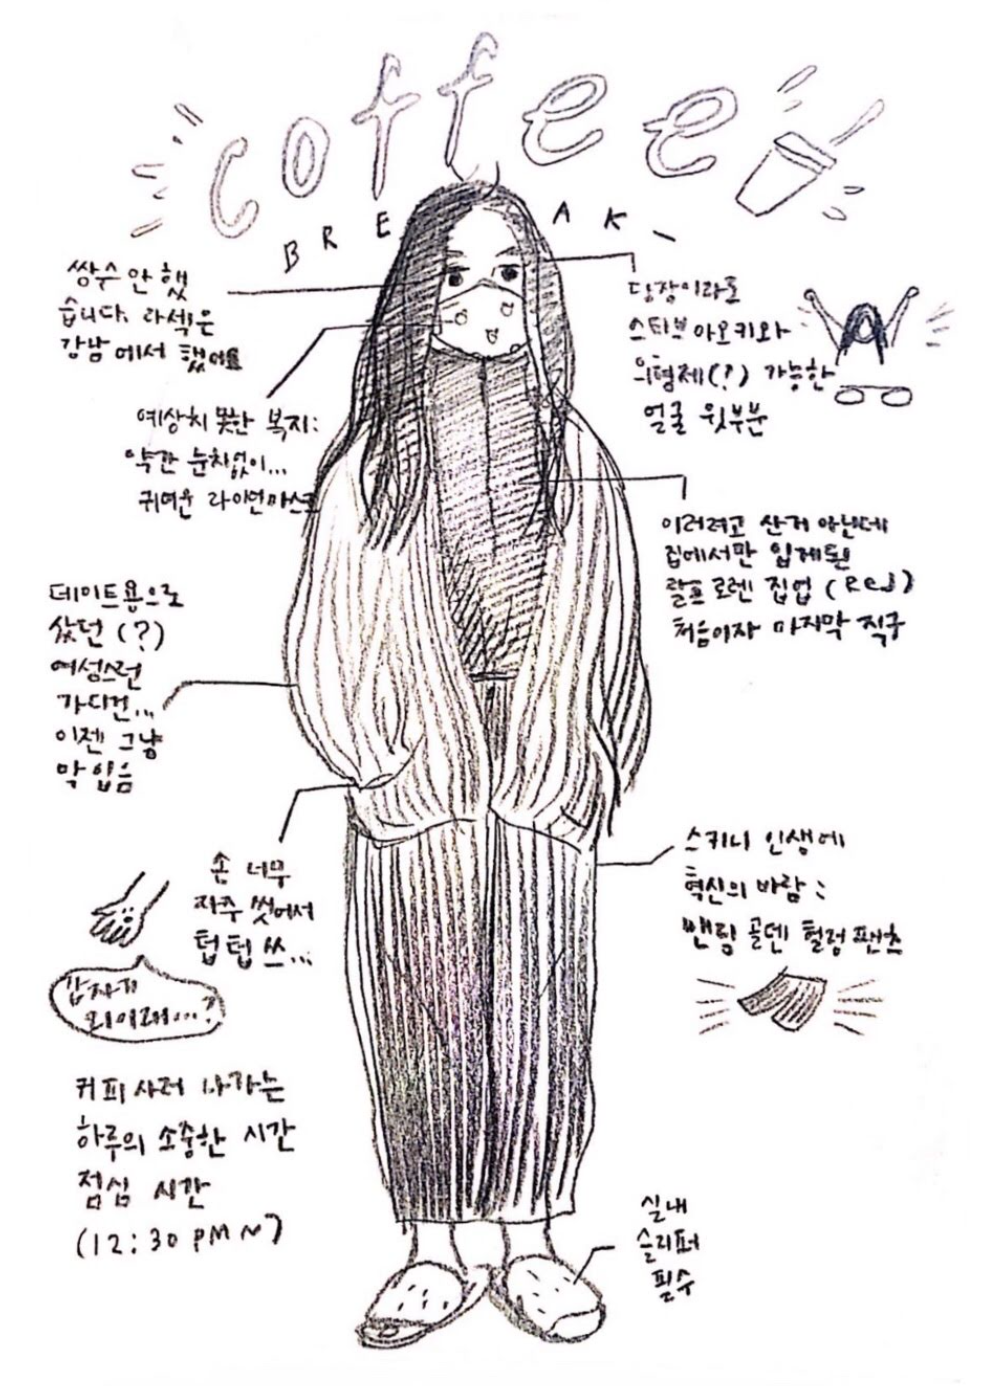 coffee
BREAK
쌍수 안 했
습니다. 라섹은
강남에서 했어요
당장이라도
스티브 아오키와
의형제(?) 가능한
얼굴 윗부분
예상치 못한 복지:
약간 눈치없이...
귀여운 라이언마스크
이러려고 산거 아닌데
집에서만 입게된
랄프 로렌 집업 (Red)
처음이자 마지막 직구
데이트용으로
샀던 (?)
여성스런
가디건...
이젠 그냥
막 입음
손 너무
자주 씻어서
텁텁 쓰...
갑자기
왜이래...?
스키니 인생에
혁신의 바람:
밴딩 골덴 헐렁 팬츠
커피 사러 나가는
하루의 소중한 시간
점심 시간
(12:30 PM~)
실내
슬리퍼
필수